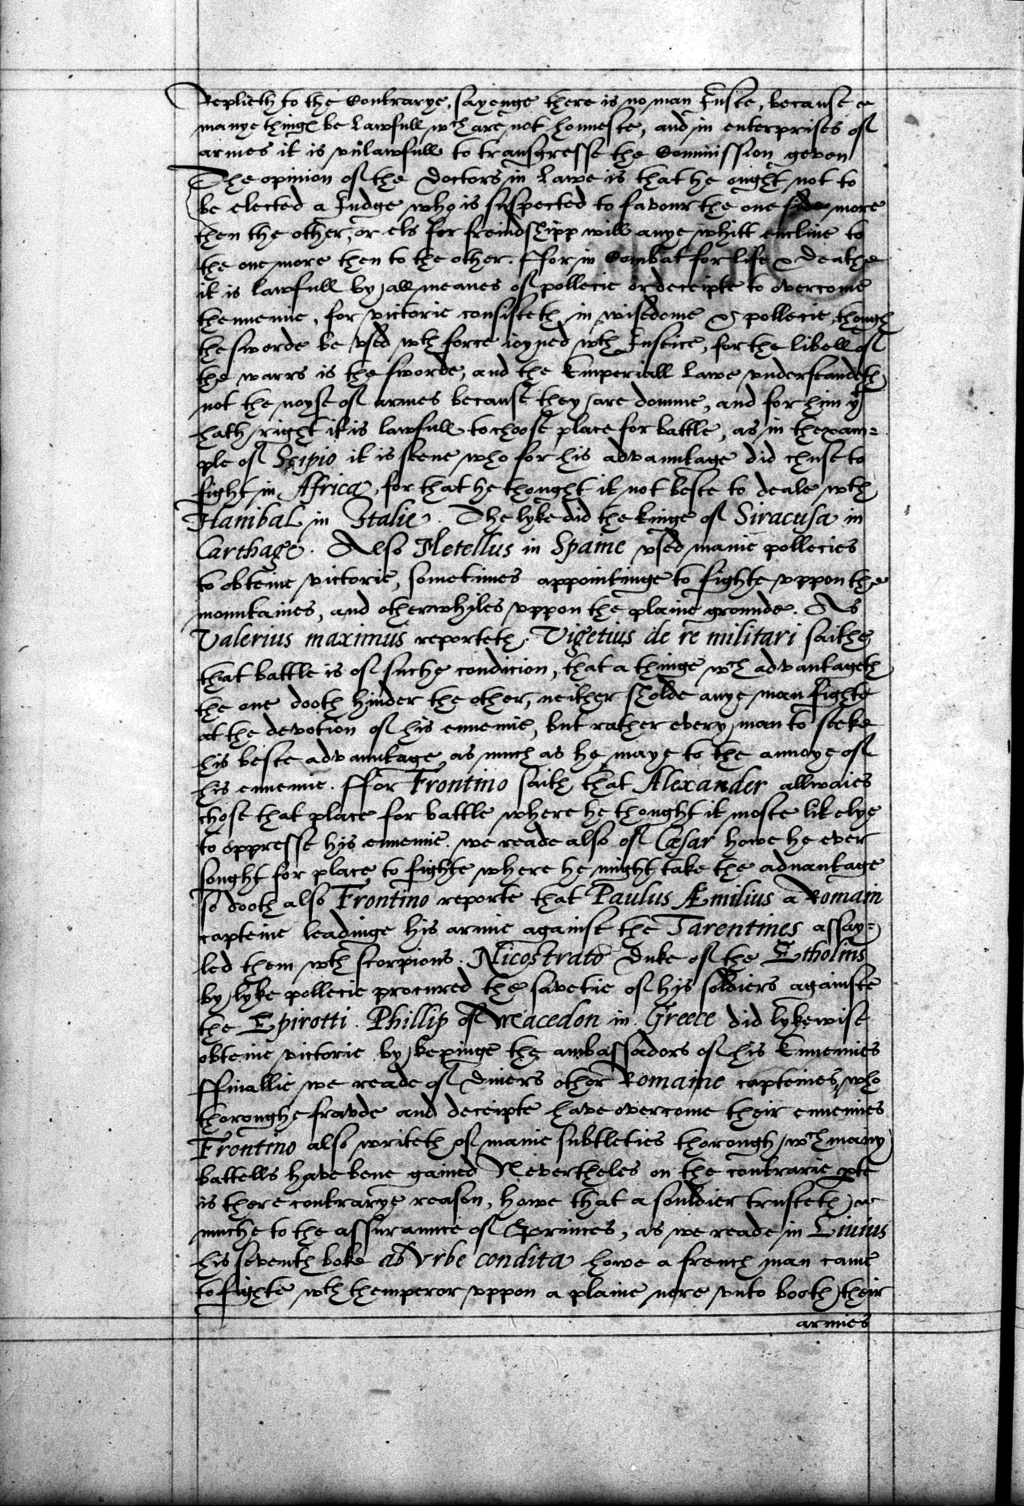 Replieth to the Contrarye, sayenge there is no man Juste, because
manye things be Lawfull wch are not honneste, and in enterprises of
armes it is vnlawfull to transgresse the Commission geven
The opinion of the Doctors in Lawe is that he ought not to
be elected a Judge who is suspected to favour the one side more
then the other, or els for freindshipp will anye whitt encline to
the one more then to the other. Ffor in Combat for life & deathe
it is lawfull by all meanes of pollecie or deceipte to overcome
thennemie, for victorie consisteth in wisedome & pollecie, though
the sworde be vsed wth force ioyned wth Justice, for the libell of
the warrs is the sworde, and the Emperiall Lawe vnderstandeth
not the noyse of armes because they are domme, and for him yt
hath right it is lawfull to choose place for battle, as in thexam=
ple of Scipio it is seene who for his advauntage did chuse to
fight in Africa, for that he thought it not beste to deale wth
Hanibal in Italie. The lyke did the kinge of Siracusa in
Carthage. Also Metellus in Spaine vsed manie pollecies
to obteine victorie, sometimes appointinge to fighte vppon the
mountaines, and otherwhyles vppon the plaine grounde. As
Valerius maximus reporteth. Vigetius de re militari saithe
that battle is of suche condicion, that a thinge wch advantageth
the one dooth hinder the other, neither sholde anye man fighte
at the devotion of his ennemie, but rather every man to seeke
his beste advauntage as much as he maye to the annoye of
his ennemie. Ffor Frontino saith that Alexander allwaies
chose that place for battle where he thought it moste likelye
to oppresse his ennemie. we reade also of Cæsar howe he ever
sought for place to fighte where he might take the aduantage
so dooth also Frontino reporte that Paulus Æmilius a Romain
capteine leadinge his armie against the Tarentines assay=
led them wth scorpions. Nicostrato Duke of the Etholins
by lyke pollecie procured the savetie of his soldiers againste
the Epirotti. Phillip of Macedon in Greece did lykewise
obteine victorie by kepinge the ambassadors of his Ennemies
Ffinallie we reade of Diuers other Romaine capteines, who
thoroughe fravde and deceipte have overcome their ennemies
Frontino also writeth of manie subtleties thorough wch many
battells have bene gained Nevertheles on the contrarie pte
is there contrarye reason, howe that a souldier trusteth
muche to the assuraunce of Princes, as we reade in Liuius
his seventh boke ab Vrbe condita howe a french man came
to fighte wth themperor vppon a plaine nere vnto booth their
armies